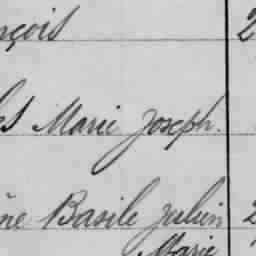 nçois 2
s Marie Joseph.
ne Basile Julien 2
Marie